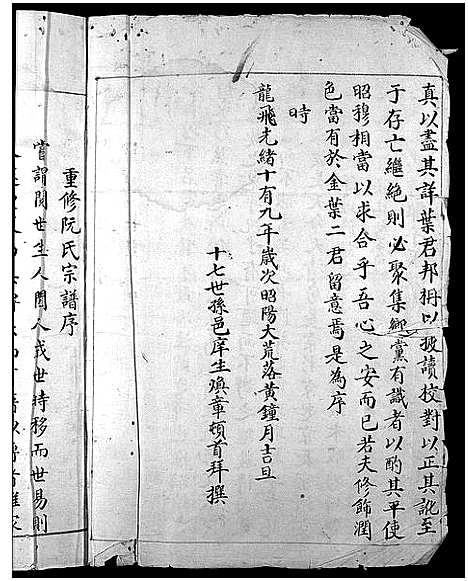 真以盡其詳葉君邦楫以披讀校對以正其訛至
于存亡繼絕則必聚集鄉黨有識者以酌其平使
昭穆相當以求合乎吾心之安而已若夫修飾潤
色當有於金葉二君留意焉是為序
時
龍飛光緒十有九年歲次昭陽大荒落黃鐘月吉旦
十七世孫邑庠生煥章頓首拜撰
重修阮氏宗譜序
嘗謂閱世生人閱人成世持移而世易則